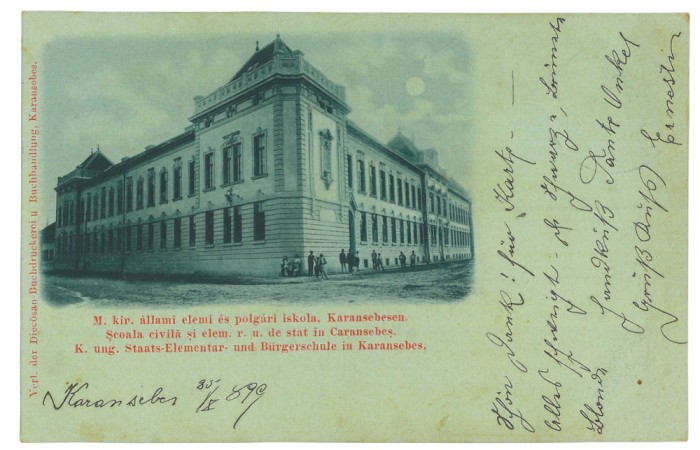 Verl. der Diöcösan-Buchdruckerei u Buchhandlung, Karansebes.
M. kir. állami elemi és polgári iskola, Karansebesen.
Școala civilă și elem. r. u. de stat în Caransebeș.
K. ung. Staats-Elementar- und Bürgerschule in Karansebes.
Karansebes 899
Schön Dank! für Karte - —
Alles schweigt - ob Schwarze,
Blonde Handkuß Tante Onkel
Gruß Kuß Ernestin